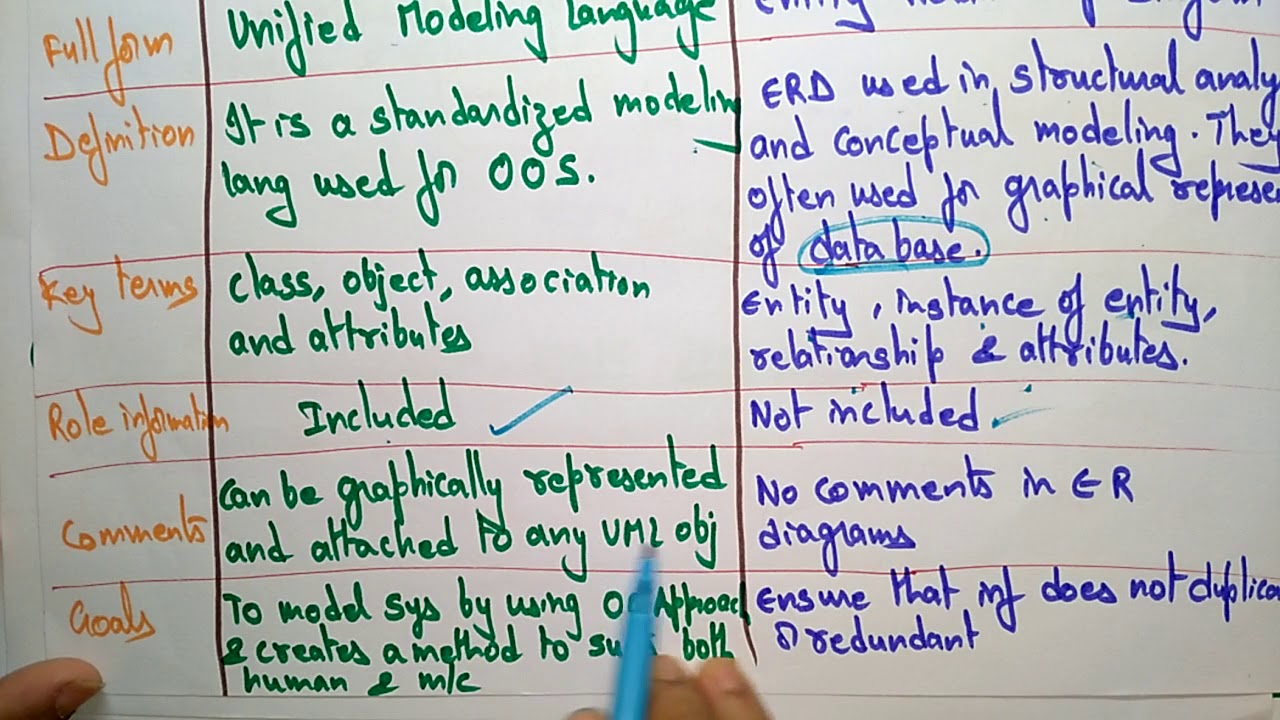 Full form
Unified Modeling Language
Definition
It is a standardized modeling
lang used for OOS.
ERD used in structural analy
and conceptual modeling. They
often used for graphical represe
of database.
Key terms
class, object, association
and attributes
Entity, instance of entity,
relationship & attributes.
Role information
Included
Not included
Comments
Can be graphically represented
and attached to any UML obj
No comments in ER
diagrams
Goals
To model sys by using Approach
& creates a method to both
human & m/c
Ensure that inf does not duplica
or redundant